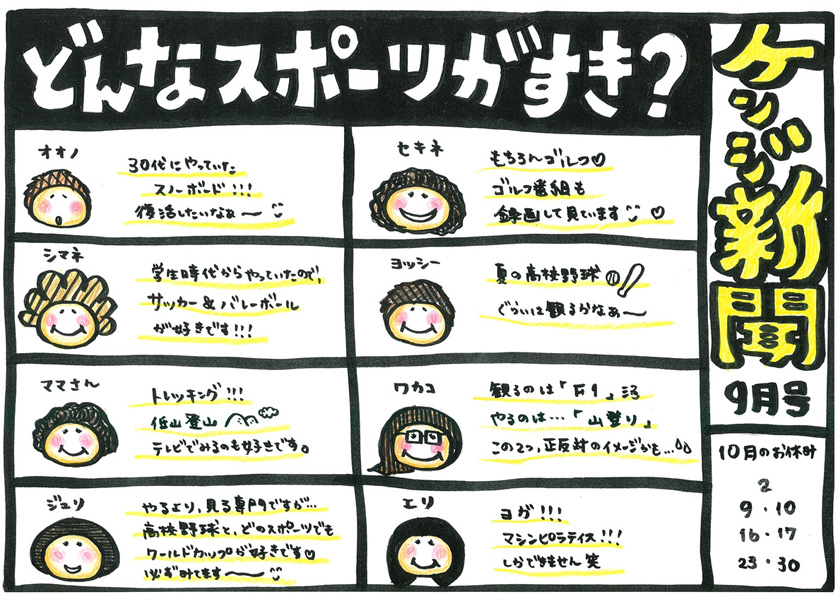 どんなスポーツがすき?
ケンジ新聞
9月号
10月のお休み
2
9・10
16・17
23・30
オオノ
30代にやっていた
スノーボード!!!
復活したいなぁ〜
セキネ
もちろんゴルフ♡
ゴルフ番組も
録画して見ています♡
シマネ
学生時代からやっていたので、
サッカー&バレーボール
が好きです!!!
ヨッシー
夏の高校野球
ぐらいは観るかなぁ〜
ママさん
トレッキング!!!
低山登山
テレビでみるのも好きです。
ワカコ
観るのは「F1」
やるのは…「山登り」
この2つ、正反対のイメージかも…
ジュリ
やるより、見る専門ですが…
高校野球と、どのスポーツでも
ワールドカップが好きです♡
必ずみてます〜
エリ
ヨガ!!!
マシンピラティス!!!
しかできません 笑